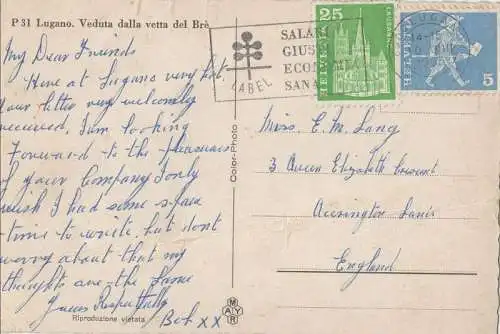 P 31 Lugano. Veduta dalla vetta del Brè
My Dear Friends
Here at Lugano very hot,
your letter very welcomly
received, I am looking
Forward to the pleasures
of your Company I only
wish I had some spare
time to write, but dont
worry about that my
thoughts are the Same
Yours Respectfully
Bob XX
Riproduzione vietata
Color-Photo
MAYR
LABEL
SALAR
GIUS
ECON
SANA
25
HELVETIA
LAUSANNE
LUGANO
HELVETIA
5
Miss. E. M. Lang
3 Queen Elizabeth Crescent
Accrington Lancs
England